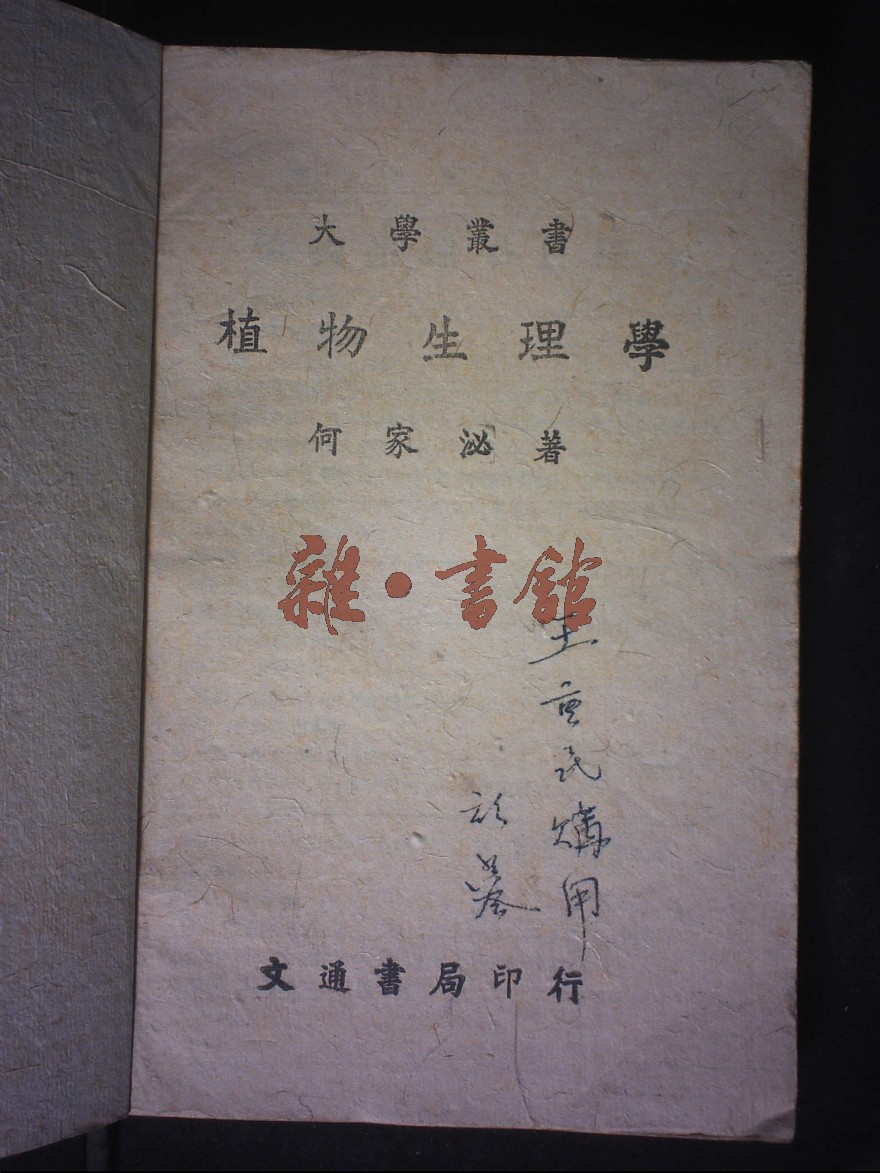 大學叢書
植物生理學
何家泌著
雜·書館
王重民購用
文通書局印行